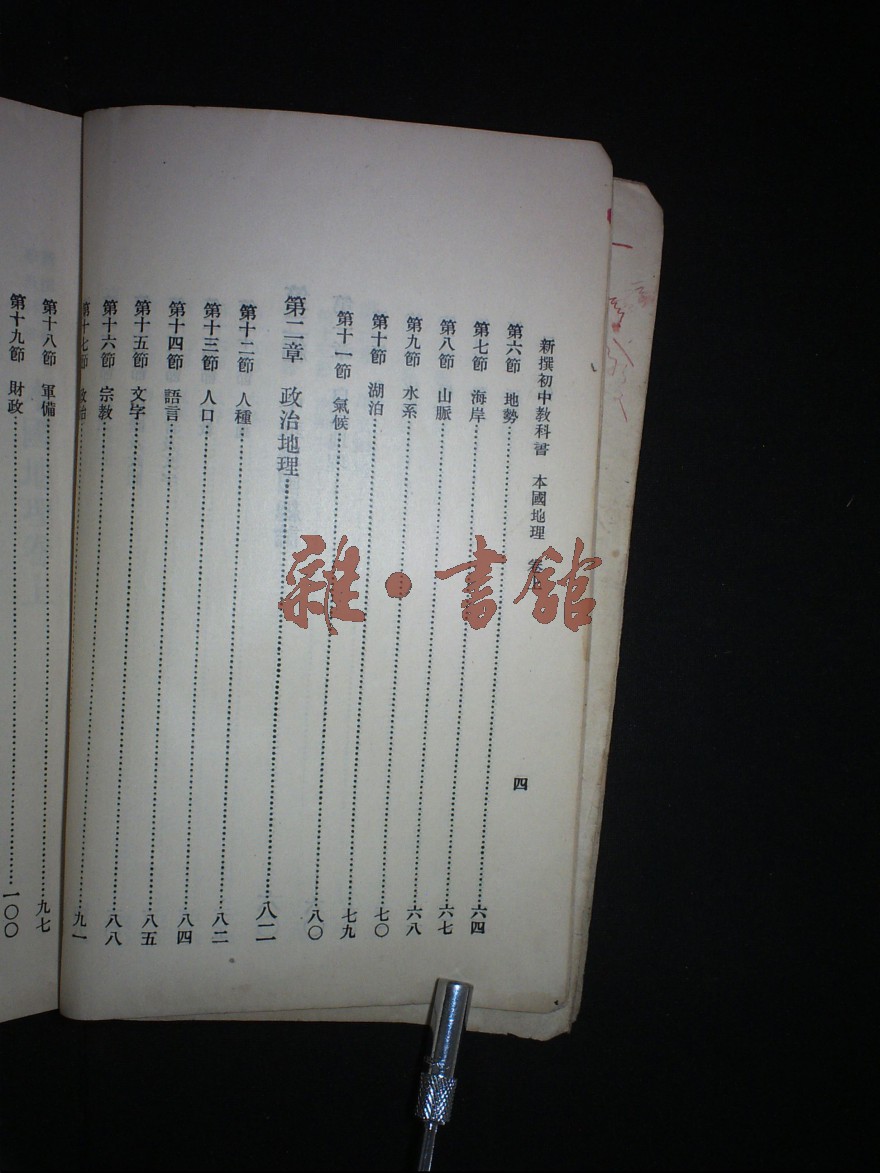 新撰初中教科書 本國地理 卷上
四
第六節 地勢……六四
第七節 海岸……六七
第八節 山脈……六八
第九節 水系……七〇
第十節 湖泊……七九
第十一節 氣候……八〇
第二章 政治地理……八二
第十二節 人種……八二
第十三節 人口……八四
第十四節 語言……八五
第十五節 文字……八八
第十六節 宗教……九一
第十七節 政治……
第十八節 軍備……九七
第十九節 財政……一〇〇
雜·書館